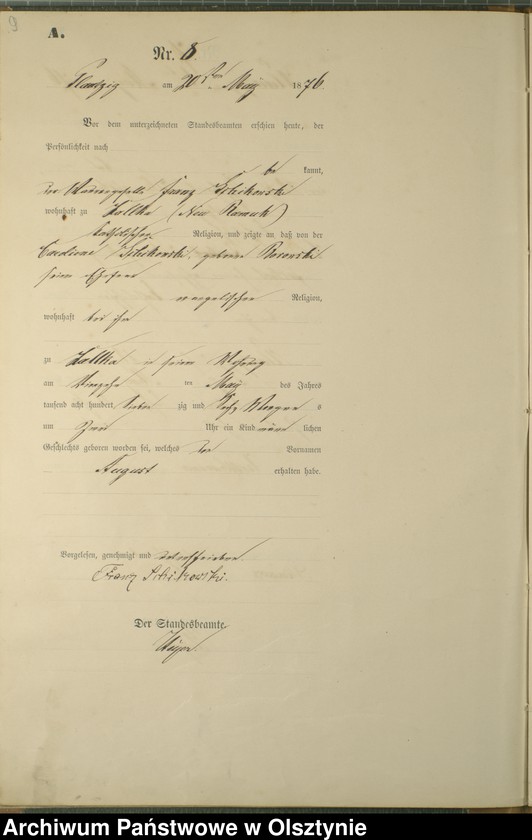 9
A.
Nr. 8
am 20ten May 1876.
Vor dem unterzeichneten Standesbeamten erschien heute, der
Persönlichkeit nach
be kannt,
der Franz
wohnhaft zu Lallka (Neu Ramuck)
katholischer Religion, und zeigte an daß von der
Caroline geborene Borowski
seiner Ehefrau
evangelischer Religion,
wohnhaft bei ihm
zu Lallka in seiner Wohnung
am Vierzehn ten May des Jahres
tausend acht hundert sieben zig und sechs Morgens
um Zwei Uhr ein Kind männ lichen
Geschlechts geboren worden sei, welches den Vornamen
August erhalten habe.
Vorgelesen, genehmigt und unterschrieben
Franz
Der Standesbeamte
Archiwum Państwowe w Olsztynie